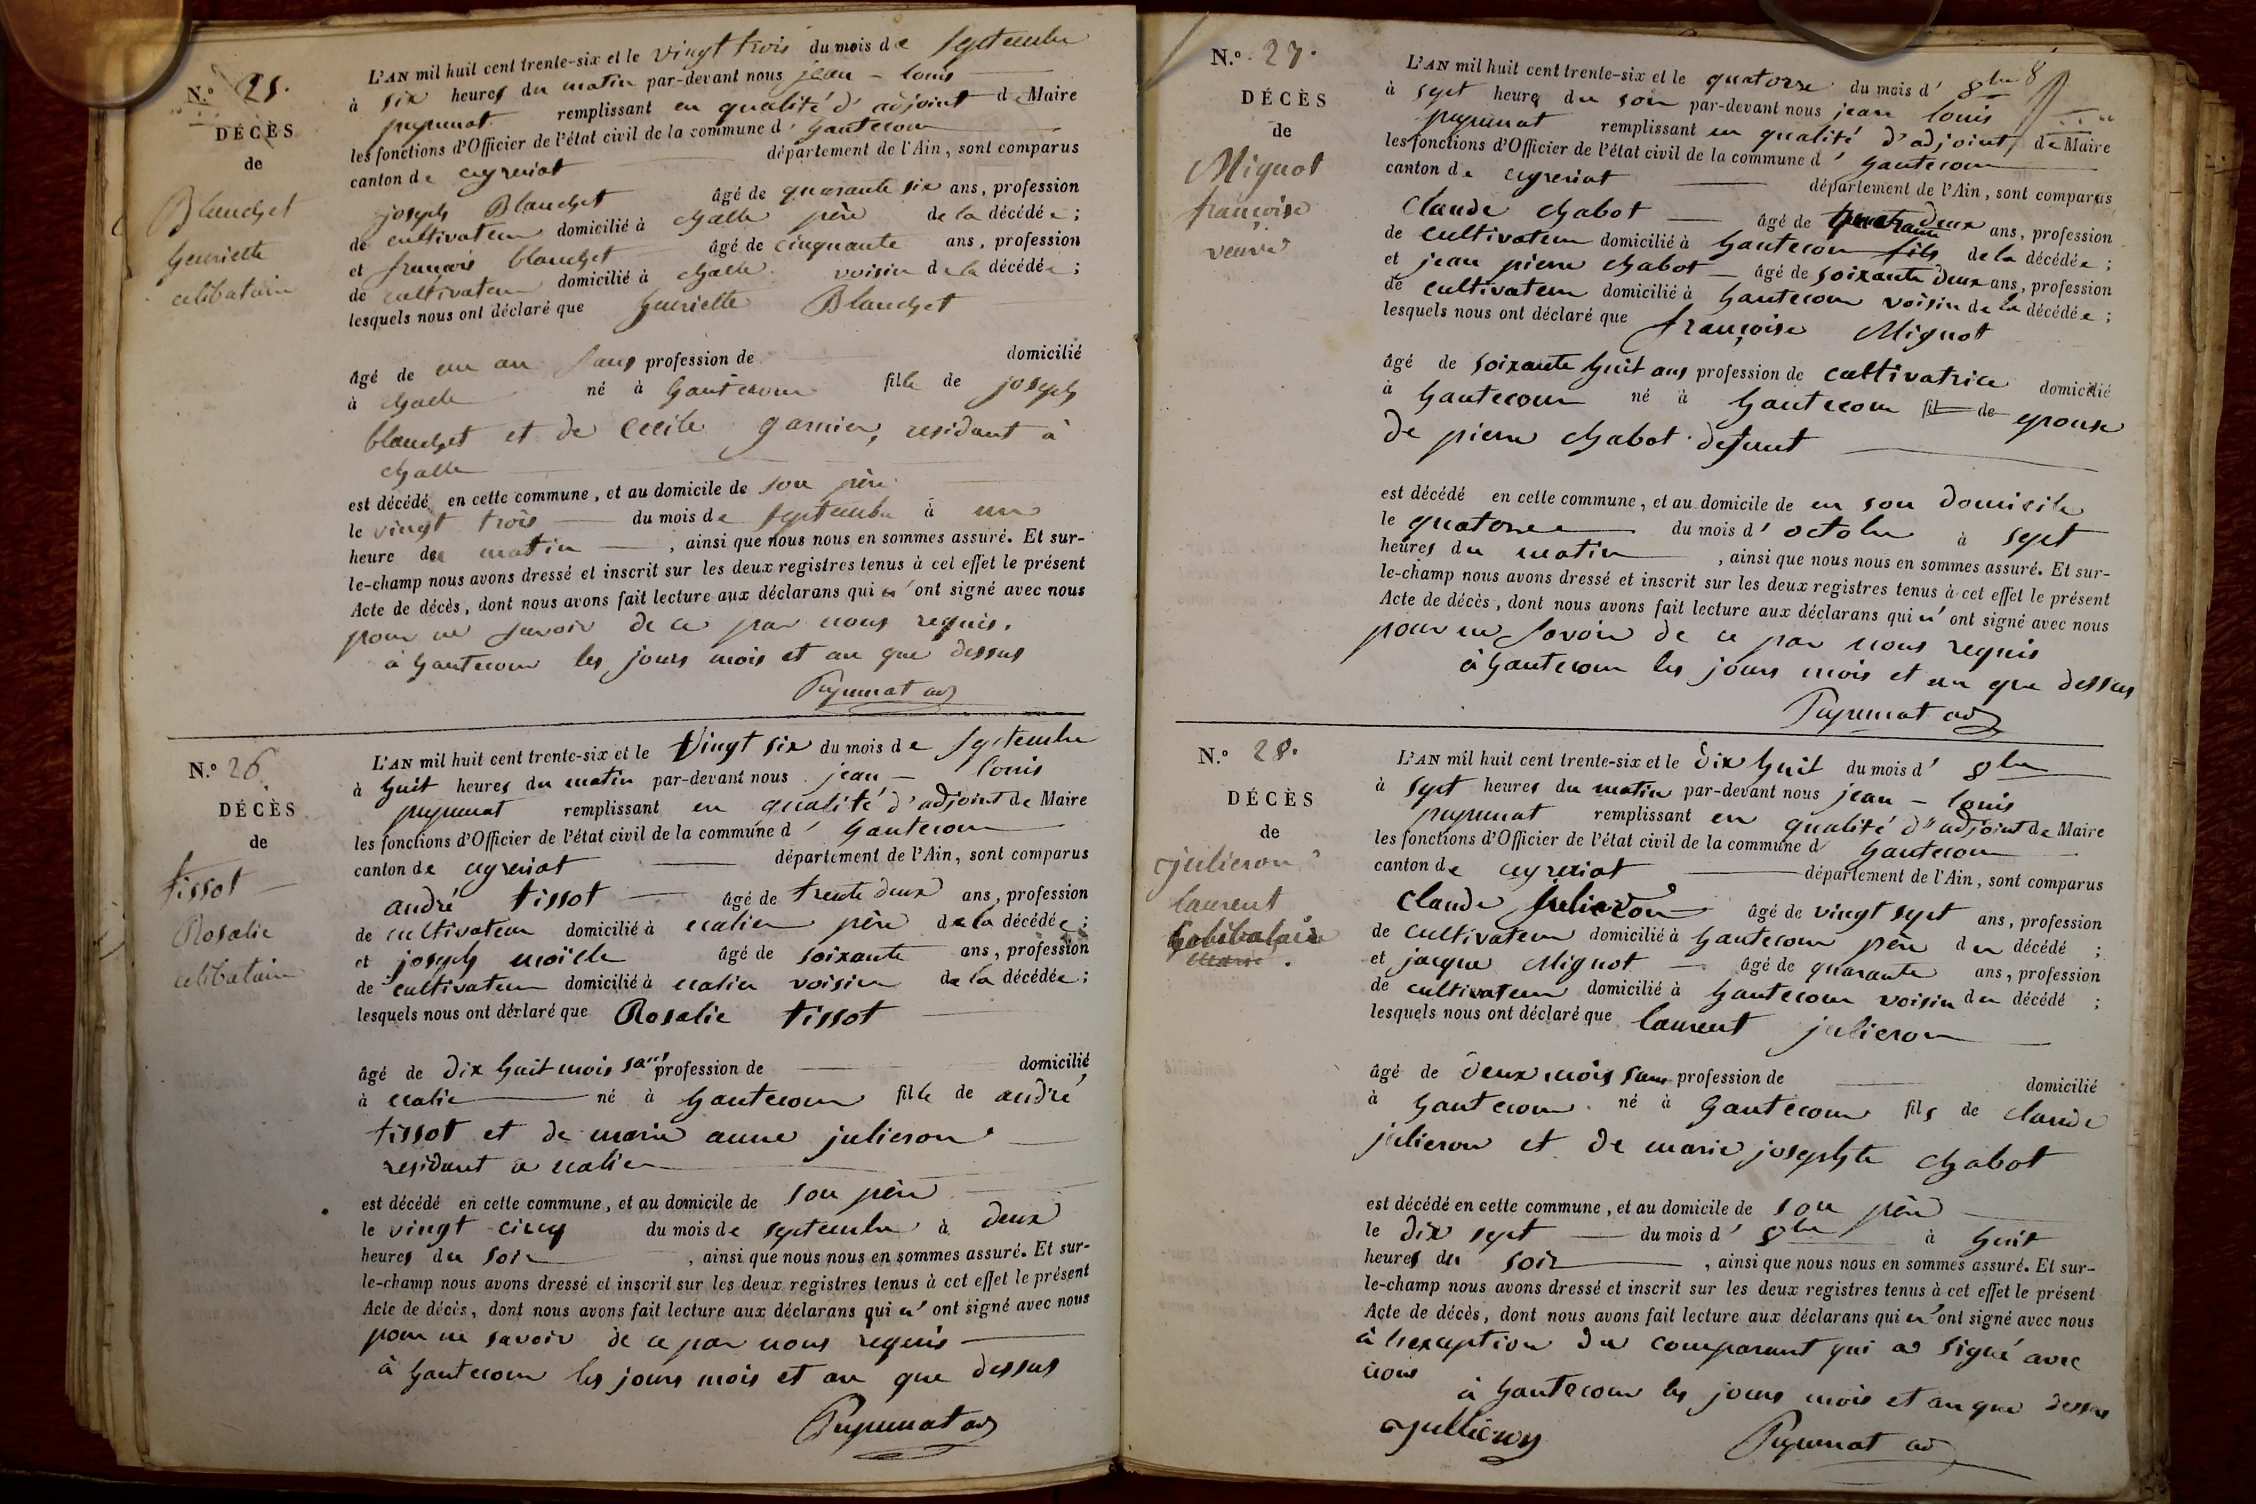 N.º 25.
DÉCÈS
de
Blanchet
henriette
celibataire
L'AN mil huit cent trente-six et le vingt trois du mois de septembre
à six heures du matin par-devant nous jean - louis
pupunat remplissant en qualité d'adjoint de Maire
les fonctions d'Officier de l'état civil de la commune d' hautecour
canton de ceyzeriat département de l'Ain, sont comparus
joseph Blanchet âgé de quarante six ans, profession
de cultivateur domicilié à challe père de la décédée ;
et francois blanchet âgé de cinquante ans, profession
de cultivateur domicilié à challe voisin de la décédée ;
lesquels nous ont déclaré que henriette Blanchet
âgé de un an sans profession de domicilié
à challe né à hautecour fille de joseph
blanchet et de cecile garnier, residant à
challe
est décédé en cette commune, et au domicile de son père
le vingt trois du mois de septembre à une
heure du matin , ainsi que nous nous en sommes assuré. Et sur-
le-champ nous avons dressé et inscrit sur les deux registres tenus à cet effet le présent
Acte de décès, dont nous avons fait lecture aux déclarans qui n'ont signé avec nous
pour ne savoir de ce par nous requis.
à hautecour les jours mois et an que dessus
Pupunat adj
N.º 26.
DÉCÈS
de
tissot
Rosalie
celibataire
L'AN mil huit cent trente-six et le vingt six du mois de septembre
à huit heures du matin par-devant nous jean - louis
pupunat remplissant en qualité d'adjoint de Maire
les fonctions d'Officier de l'état civil de la commune d' hautecour
canton de ceyzeriat département de l'Ain, sont comparus
andré tissot âgé de trente deux ans, profession
de cultivateur domicilié à père de la décédée ;
et joseph moille âgé de soixante ans, profession
de cultivateur domicilié à voisin de la décédée ;
lesquels nous ont déclaré que Rosalie tissot
âgé de dix huit mois sans profession de domicilié
à né à hautecour fille de andré
tissot et de marie anne julieron
residant a
est décédé en cette commune, et au domicile de son père
le vingt cinq du mois de septembre à deux
heures du soir , ainsi que nous nous en sommes assuré. Et sur-
le-champ nous avons dressé et inscrit sur les deux registres tenus à cet effet le présent
Acte de décès, dont nous avons fait lecture aux déclarans qui n'ont signé avec nous
pour ne savoir de ce par nous requis
à hautecour les jours mois et an que dessus
Pupunat adj
N.º 27.
DÉCÈS
de
Mignot
françoise
veuve
L'AN mil huit cent trente-six et le quatorze du mois d' 8bre
à sept heures du soir par-devant nous jean louis
pupunat remplissant en qualité d'adjoint de Maire
les fonctions d'Officier de l'état civil de la commune d' hautecour
canton de ceyzeriat département de l'Ain, sont comparus
Claude chabot âgé de quarante deux ans, profession
de cultivateur domicilié à hautecour fils de la décédée ;
et jean pierre chabot âgé de soixante deux ans, profession
de cultivateur domicilié à hautecour voisin de la décédée ;
lesquels nous ont déclaré que françoise Mignot
âgé de soixante huit ans profession de cultivatrice domicilié
à hautecour né à hautecour fil de epouse
de pierre chabot defunt
est décédé en cette commune, et au domicile de en son domicile
le quatorze du mois d' octobre à sept
heures du matin , ainsi que nous nous en sommes assuré. Et sur-
le-champ nous avons dressé et inscrit sur les deux registres tenus à cet effet le présent
Acte de décès, dont nous avons fait lecture aux déclarans qui n'ont signé avec nous
pour ne savoir de ce par nous requis
à hautecour les jours mois et an que dessus
Pupunat adj
N.º 28.
DÉCÈS
de
julieron
laurent
celibataire
L'AN mil huit cent trente-six et le dix huit du mois d' 8bre
à sept heures du matin par-devant nous jean - louis
pupunat remplissant en qualité d'adjoint de Maire
les fonctions d'Officier de l'état civil de la commune d' hautecour
canton de ceyzeriat département de l'Ain, sont comparus
Claude julieron âgé de vingt sept ans, profession
de cultivateur domicilié à hautecour père du décédé ;
et jacque Mignot âgé de quarante ans, profession
de cultivateur domicilié à hautecour voisin du décédé ;
lesquels nous ont déclaré que laurent julieron
âgé de deux mois sans profession de domicilié
à hautecour né à hautecour fils de claude
julieron et de marie josephte chabot
est décédé en cette commune, et au domicile de son père
le dix sept du mois d' 8bre à huit
heures du soir , ainsi que nous nous en sommes assuré. Et sur-
le-champ nous avons dressé et inscrit sur les deux registres tenus à cet effet le présent
Acte de décès, dont nous avons fait lecture aux déclarans qui n'ont signé avec nous
à l'exception du comparant qui a signé avec
nous
à hautecour les jours mois et an que dessus
Jullieron Pupunat adj